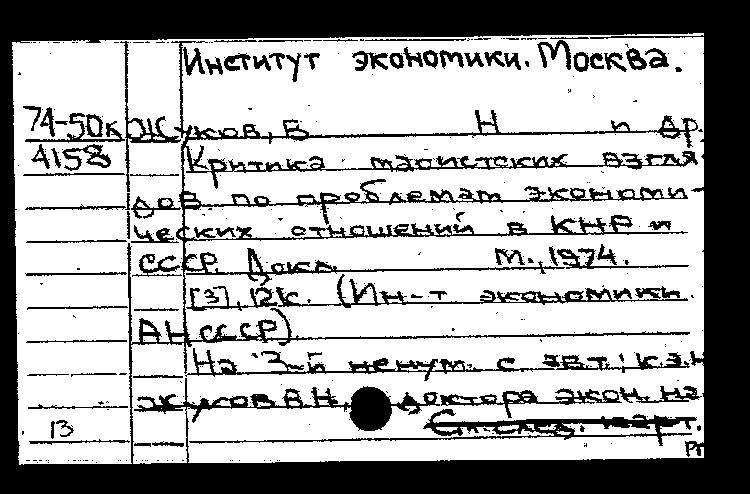 Институт экономики. Москва.
74-50к Жуков, В Н и др.
4158 Критика маоистских взгля-
дов по проблемам экономи-
ческих отношений в КНР и
СССР. Докл. М., 1974.
[3], 12к. (Ин-т экономики
АН СССР)
На 3-й ненум. с авт.: к.э.н
Жуков В.Н., доктора экон. на
13 См. след. карт.